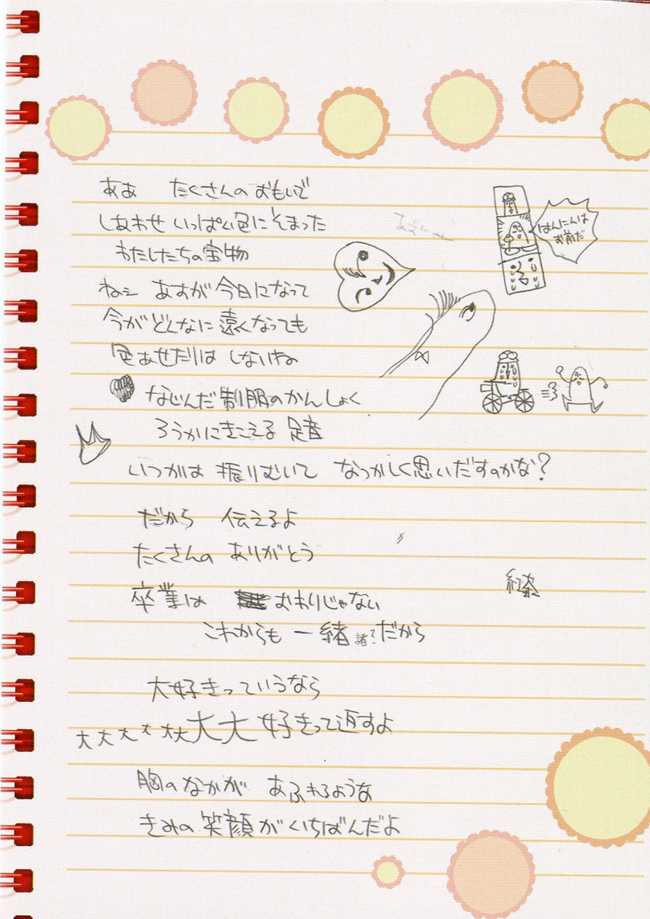 ああ たくさんのおもいで
しあわせ いっぱい色にそまった
わたしたちの宝物
ねェ あすが今日になって
今がどんなに遠くなっても
色あせたりは しないね
なじんだ制服のかんしょく
ろうかにきこえる 足音
いつかは 振りむいて なつかしく思いだすのかな?
だから 伝えるよ
たくさんの ありがとう
卒業は おわりじゃない
これからも 一緒 諸? だから
大好きっていうなら
大大大大大大大大好きって返すよ
胸のなかが あふれるような
きみの 笑顔がいちばんだよ
はんにんは
お前だ
紅茶